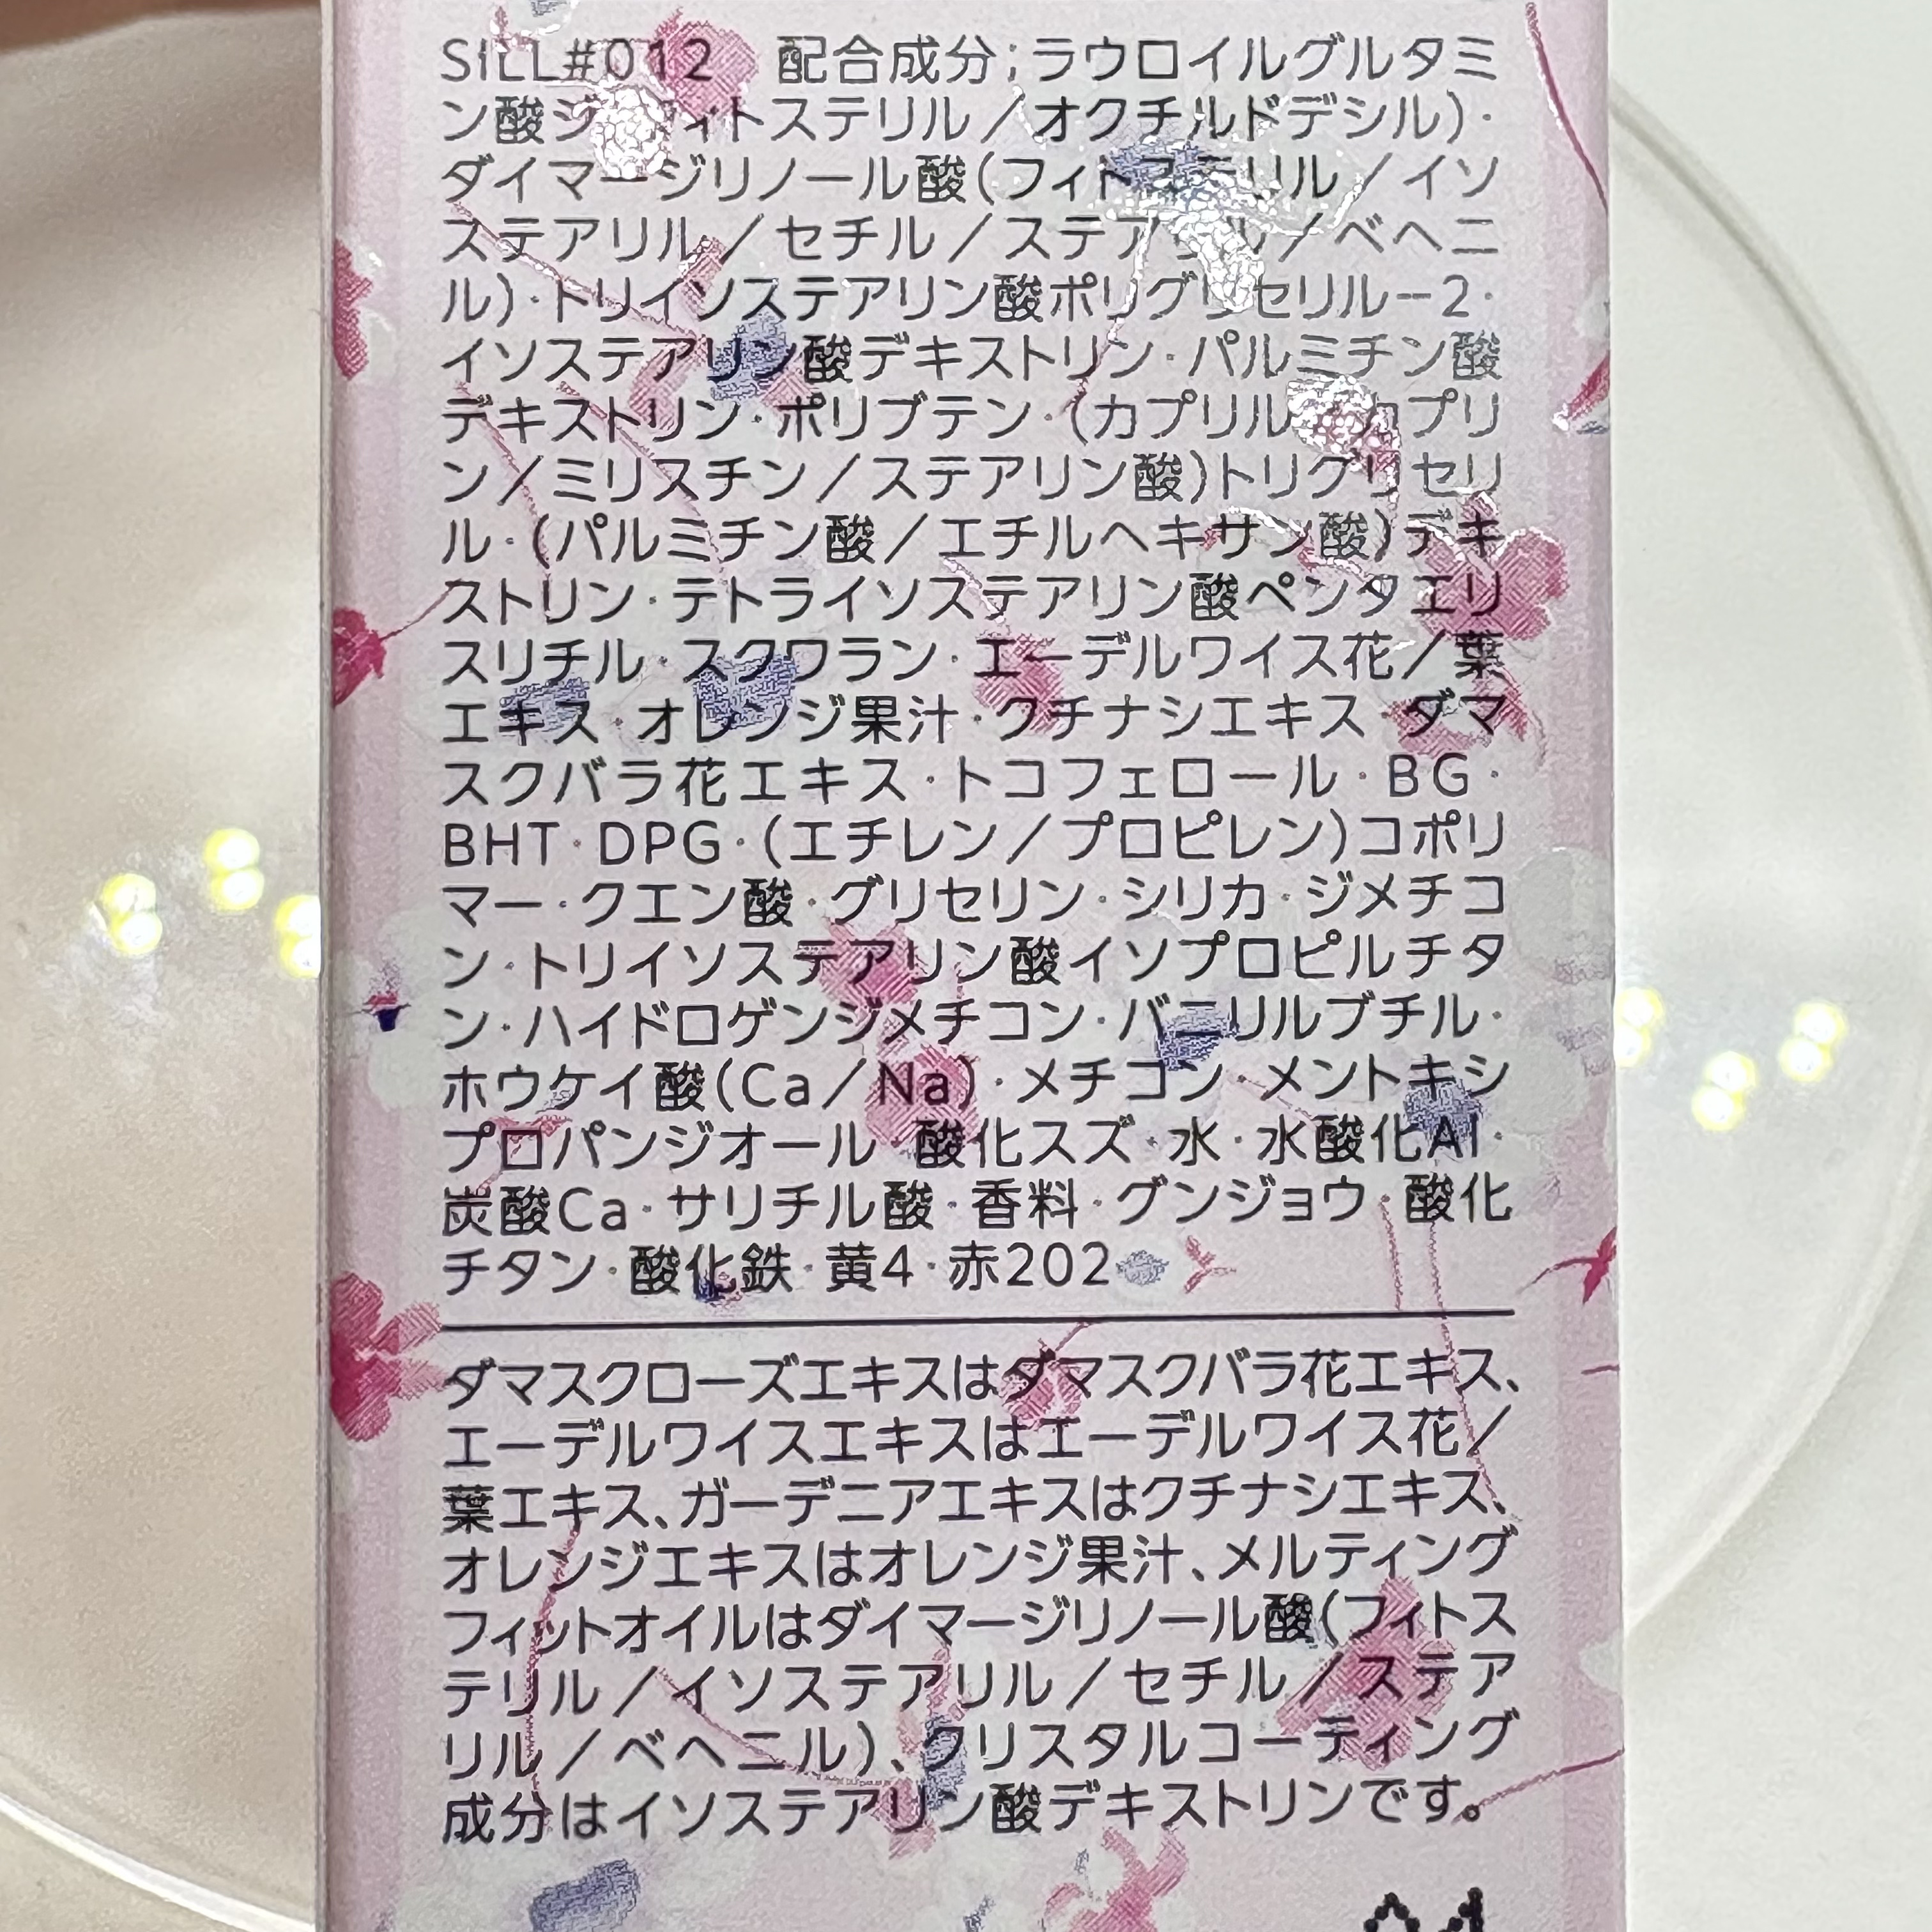 SILL#012　配合成分;ラウロイルグルタミ
ン酸ジ(フィトステリル／オクチルドデシル)・
ダイマージリノール酸(フィトステリル／イソ
ステアリル／セチル／ステアリル／ベヘニ
ル)・トリイソステアリン酸ポリグリセリル－2・
イソステアリン酸デキストリン・パルミチン酸
デキストリン・ポリブテン・(カプリル／カプリ
ン／ミリスチン／ステアリン酸)トリグリセリ
ル・(パルミチン酸／エチルヘキサン酸)デキ
ストリン・テトライソステアリン酸ペンタエリ
スリチル・スクワラン・エーデルワイス花／葉
エキス・オレンジ果汁・クチナシエキス・ダマ
スクバラ花エキス・トコフェロール・BG・
BHT・DPG・(エチレン／プロピレン)コポリ
マー・クエン酸・グリセリン・シリカ・ジメチコ
ン・トリイソステアリン酸イソプロピルチタ
ン・ハイドロゲンジメチコン・バニリルブチル・
ホウケイ酸(Ca／Na)・メチコン・メントキシ
プロパンジオール・酸化スズ・水・水酸化Al・
炭酸Ca・サリチル酸・香料・グンジョウ・酸化
チタン・酸化鉄・黄4・赤202
ダマスクローズエキスはダマスクバラ花エキス、
エーデルワイスエキスはエーデルワイス花／
葉エキス、ガーデニアエキスはクチナシエキス、
オレンジエキスはオレンジ果汁、メルティング
フィットオイルはダイマージリノール酸(フィトス
テリル／イソステアリル／セチル／ステア
リル／ベヘニル)、クリスタルコーティング
成分はイソステアリン酸デキストリンです。